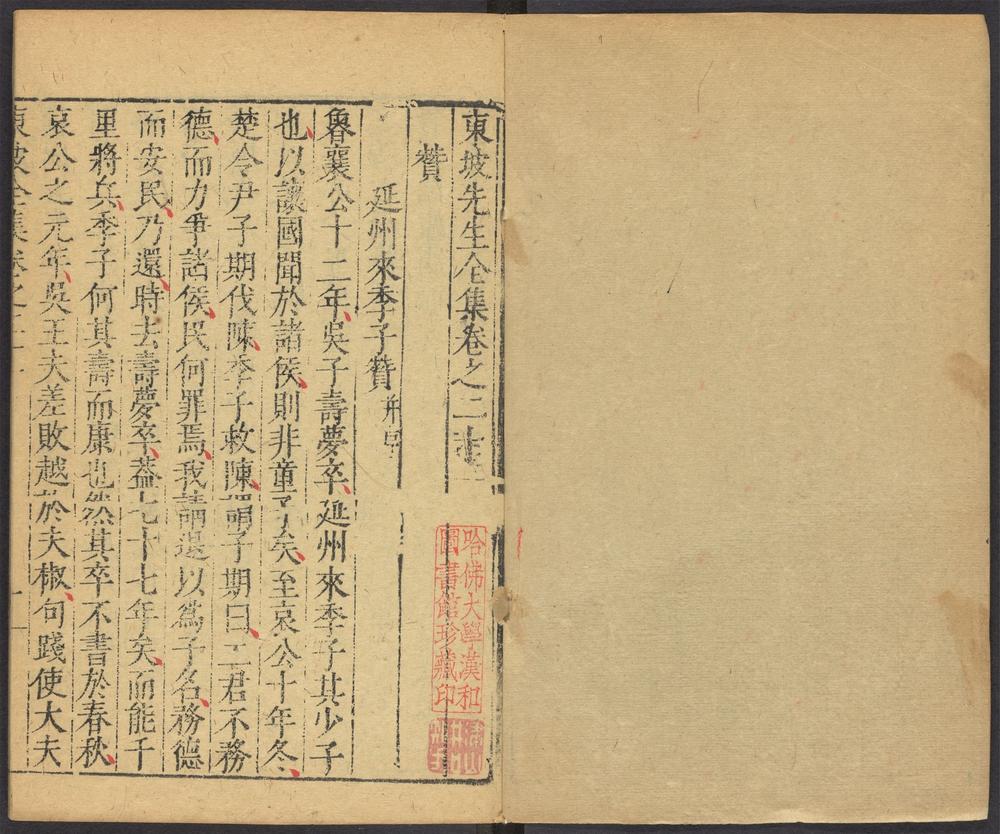 東坡先生全集卷之二十
贊
延州來季子贊并引
魯襄公十二年吳子壽夢卒延州來季子其少子
也以讓國聞於諸侯則非童子矣至哀公十年冬
楚令尹子期伐陳季子救陳謂子期曰二君不務
德而力爭諸侯民何罪焉我請退以爲子名務德
而安民乃還時去壽夢卒蓋七十七年矣而能千
里將兵季子何其壽而康也然其卒不書於春秋
哀公之元年吳王夫差敗越於夫椒句踐使大夫
東坡全集卷之二十 一
哈佛大學漢和
圖書館珍藏印